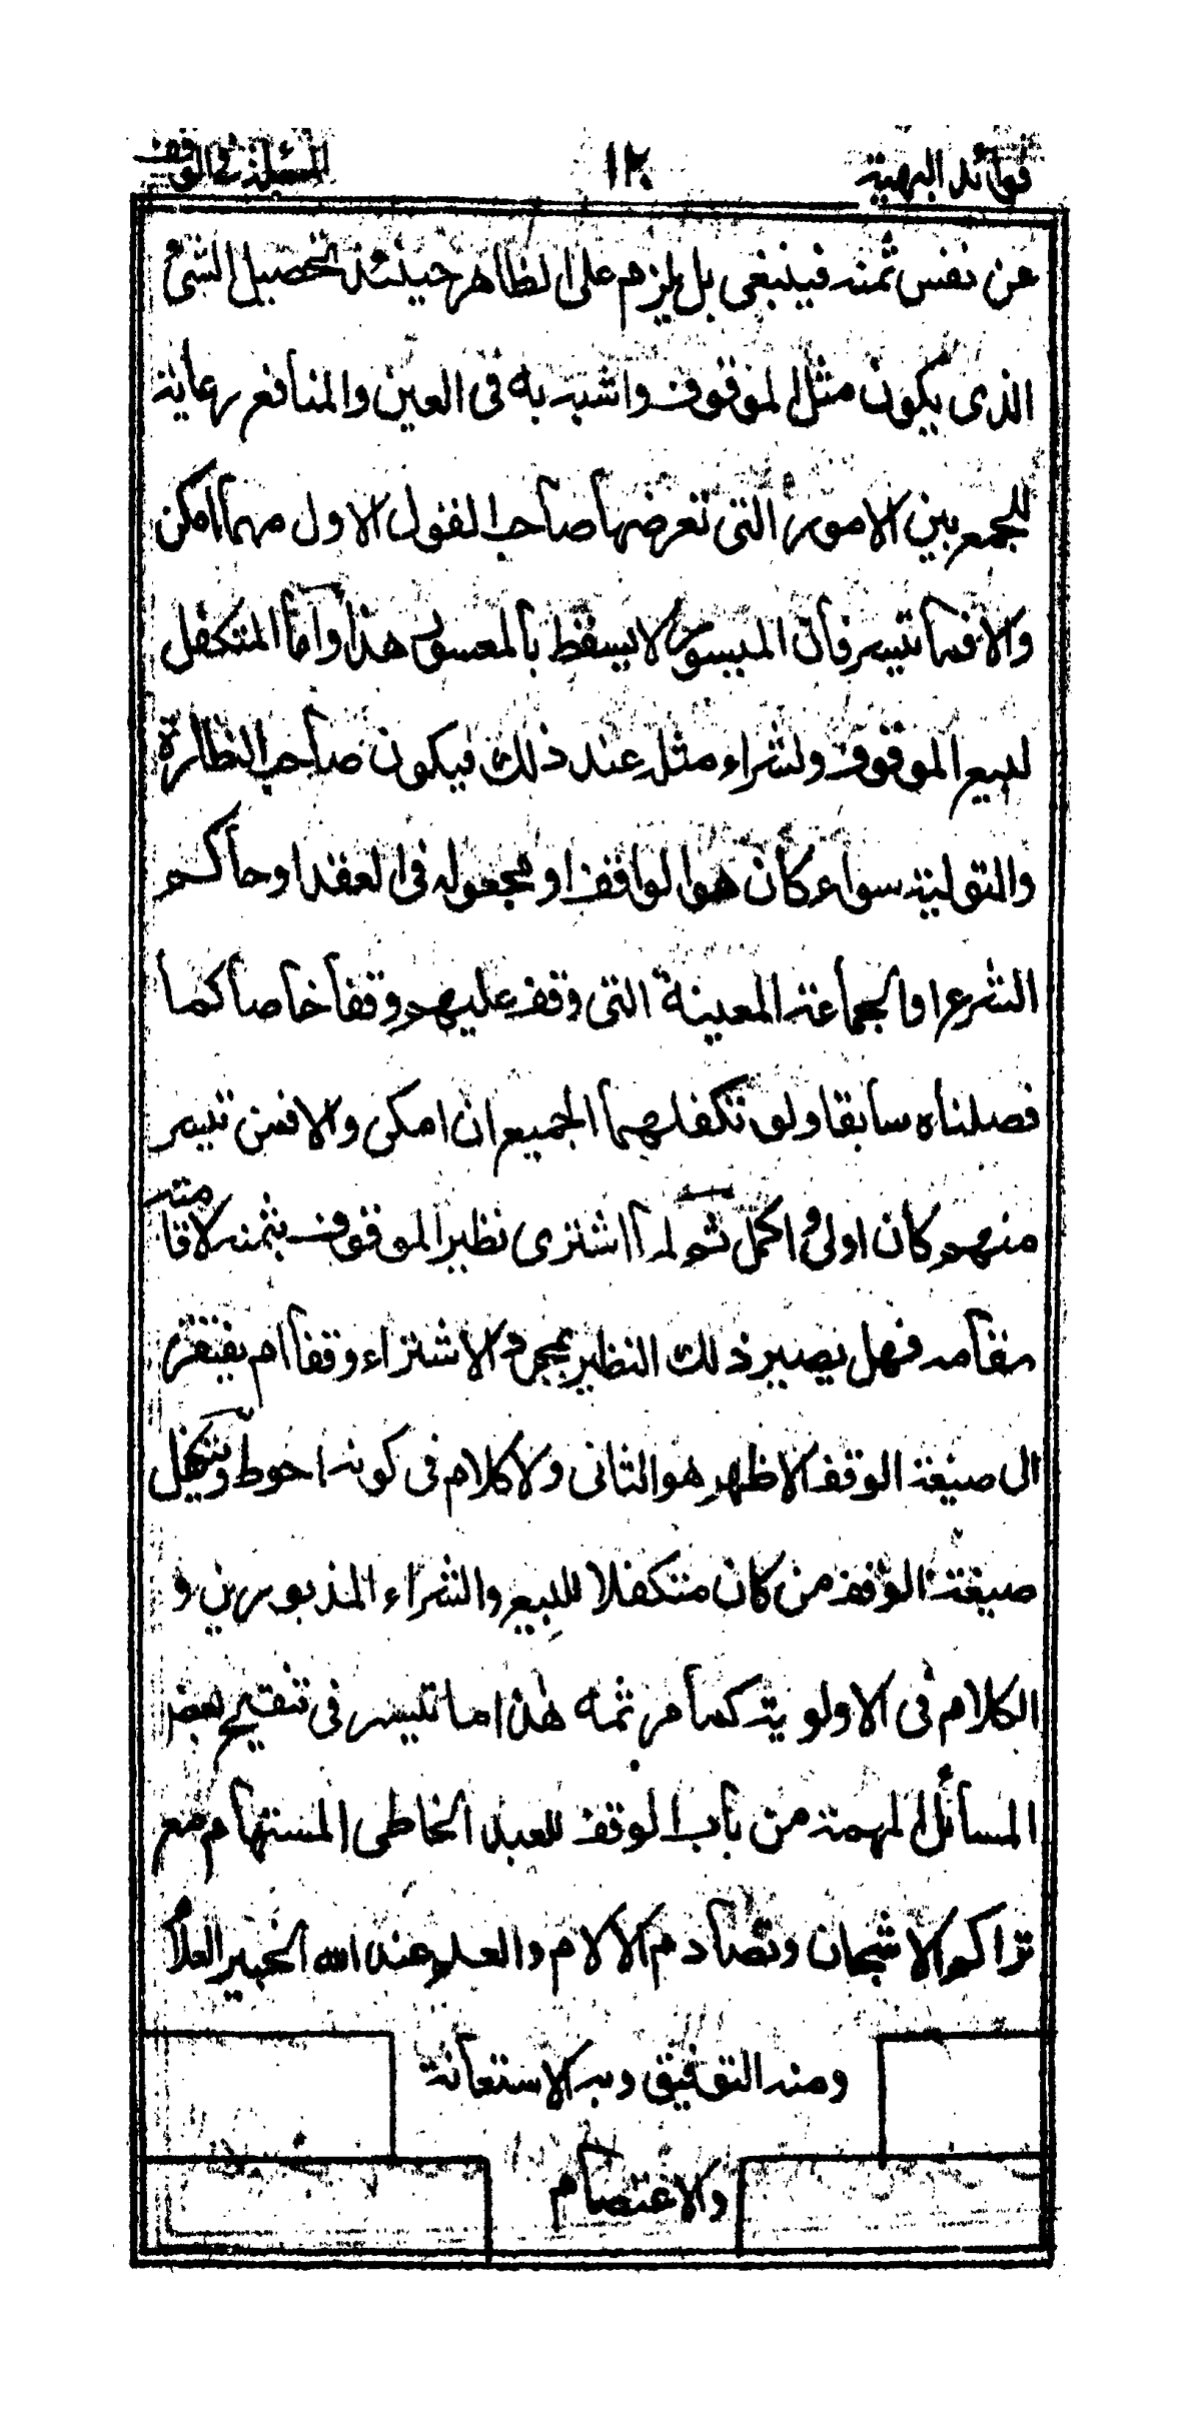 فوائد البهية ١٢ المسئلة فى الوقف
عن نفس ثمنه فينبغى بل يلزم على الظاهر حينئذ تحصيل الشئ
الذى يكون مثل الموقوف واشبه به فى العين والمنافع رعاية
للجمع بين الامور التى تعرضها صاحب القول الاول مهما امكن
والا فما تيسر فان الميسور لا يسقط بالمعسور هذا واما المتكفل
لبيع الموقوف ولشراء مثله عند ذلك فيكون صاحب النظارة
والتولية سواء كان هو الواقف او المجعول له فى العقد او حاكم
الشرع او الجماعة المعينة التى وقف عليهم وقفا خاصا كما
فصلناه سابقا ولو تكفلهما الجميع ان امكن والا فمن تيسر
منهم كان اولى و اكمل ثم لما اشترى نظير الموقوف بثمنه لاقامته
مقامه فهل يصير ذلك النظير بمجرد الاشتراء وقفا ام يفتقر
الى صيغة الوقف الاظهر هو الثانى ولا كلام فى كونه احوط ويتكفل
صيغة الوقف من كان متكفلا للبيع والشراء المذبورين و
الكلام فى الاولوية كما مر ثمه هذا ما تيسر فى تنقيح بعض
المسائل المهمة من باب الوقف للعبد الخاطى المستهام مع
تراكم الاشجان وتصادم الالام والعلم عند الله الخبير العلام
ومنه التوفيق وبه الاستعانة
والاعتصام